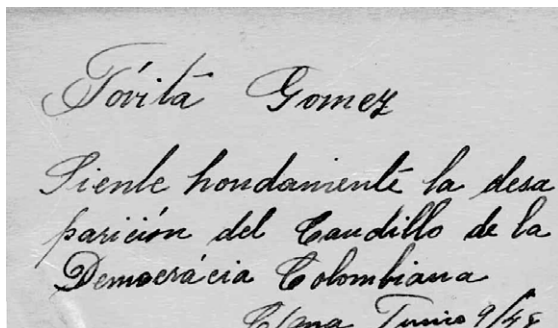 Tóvita Gomez
Siente hondamente la desa
parición del Caudillo de la
Democrácia Colombiana
Junio 9/48